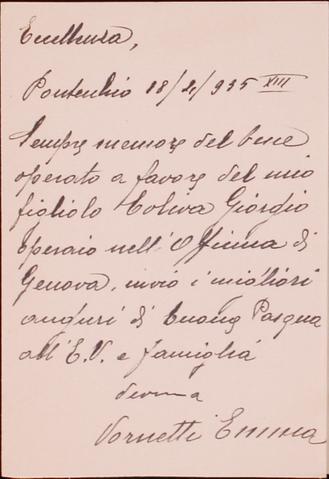 Eccellenza,
18/4/935 XIII
Sempre memore del bene
operato a favore del mio
figliolo Coliva Giorgio
operaio nell'Officina di
Genova, invio i migliori
auguri di buona Pasqua
all'E.V. e famiglia
Emma